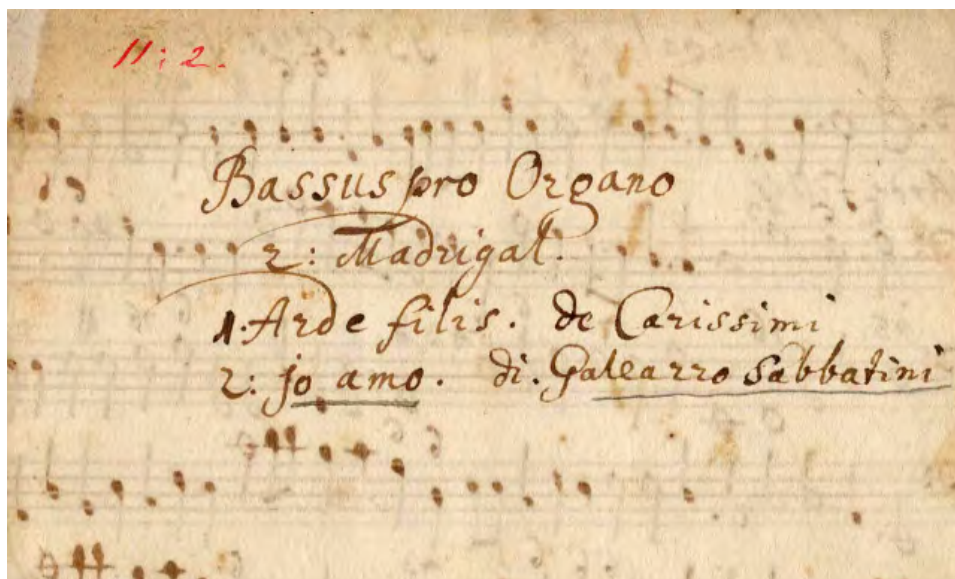 11:2.
Bassus pro Organo
2: Madrigal.
1. Arde filis. de Carissimi
2: jo amo. di. Galeazzo Sabbatini